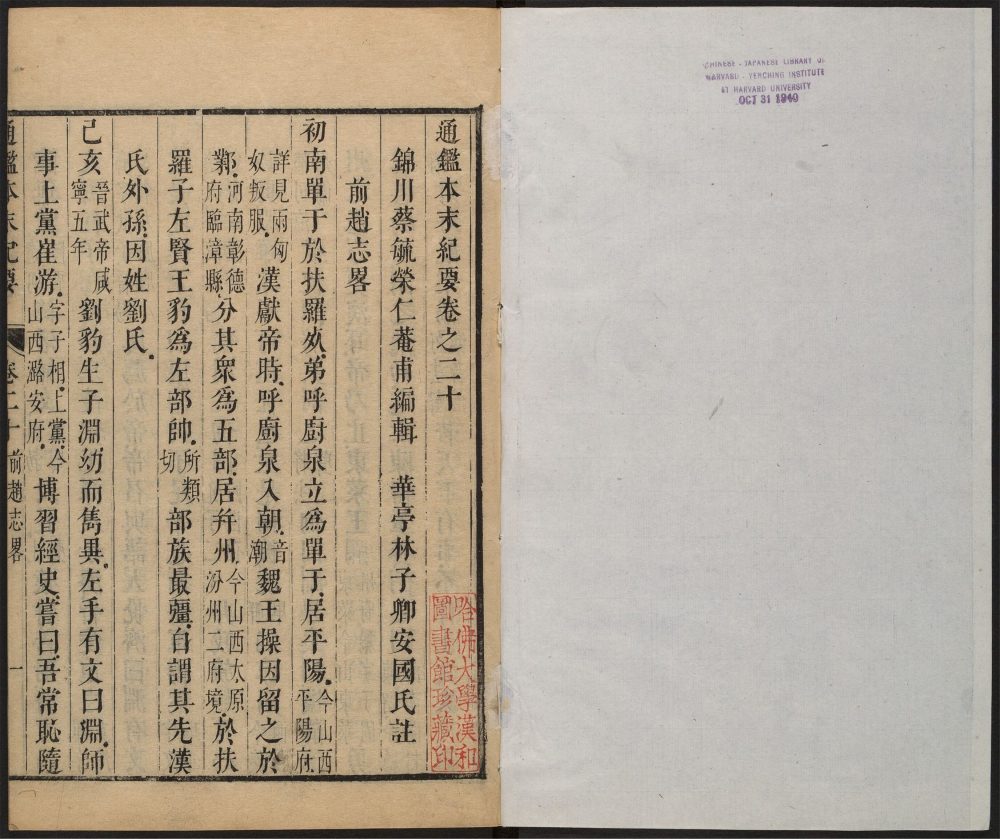 CHINESE - JAPANESE LIBRARY OF
HARVARD - YENCHING INSTITUTE
AT HARVARD UNIVERSITY
OCT 31 1940
通鑑本末紀要卷之二十
錦川蔡毓榮仁菴甫編輯 華亭林子卿安國氏註
哈佛大學漢和
圖書館珍藏印
前趙志畧
初南單于於扶羅死弟呼廚泉立爲單于居平陽今山西平陽府
詳見兩匈奴叛服漢獻帝時呼廚泉入朝音潮魏王操因留之於
鄴河南彰德府臨漳縣分其衆爲五部居幷州今山西太原汾州二府境於扶
羅子左賢王豹爲左部帥所類切部族最彊自謂其先漢
氏外孫因姓劉氏
己亥晉武帝咸寧五年劉豹生子淵幼而雋異左手有文曰淵師
事上黨崔游字子相上黨今山西潞安府博習經史嘗曰吾常恥隨
通鑑本末紀要 卷二十 前趙志畧 一